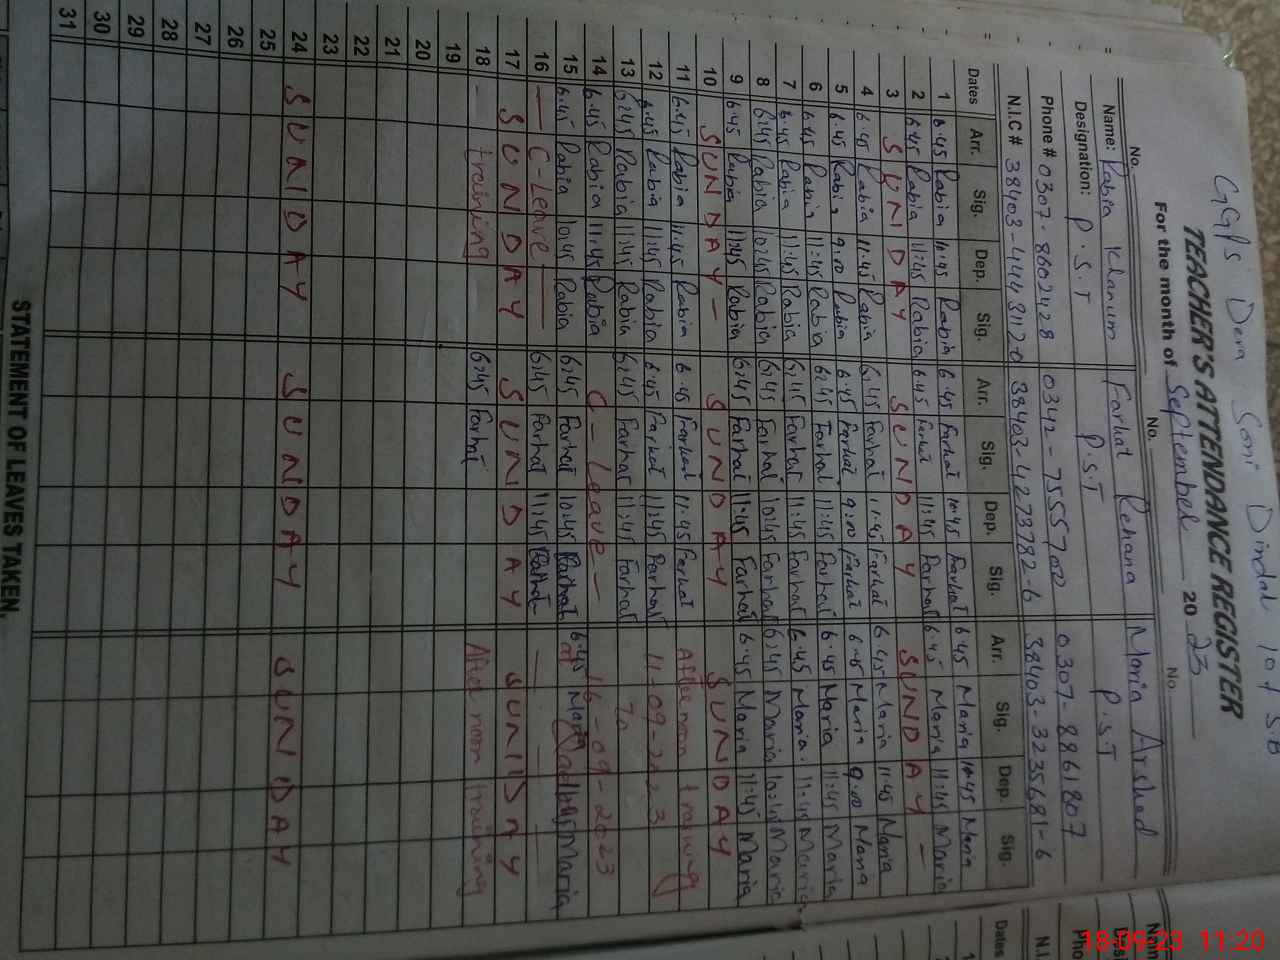 GGPS Dera Soni Dindal 10 + S.B
TEACHER'S ATTENDANCE REGISTER
For the month of September 2023
No. No. No.
Name: Rabia Khanum Farhat Rehana Maria Arshad
Designation: P.S.T P.S.T P.S.T
Phone # 0307-8602428 0342-7555702 0307-8861807
N.I.C # 38403-4443112-0 38403-4273782-6 38403-3235681-6
Dates Arr. Sig. Dep. Sig. Arr. Sig. Dep. Sig. Arr. Sig. Dep. Sig.
1 6.45 Rabia 11.45 Rabia 6.45 Farhat 10.45 Farhat 6.45 Maria 10.45 Maria
2 6.45 Rabia 11:45 Rabia 6.45 Farhat 11:45 Farhat 6.45 Maria 11:45 Maria
3 SUNDAY SUNDAY SUNDAY -
4 6.45 Rabia 11.45 Rabia 6.45 Farhat 11.45 Farhat 6.45 Maria 11.45 Maria
5 6.45 Rabia 9.00 Rabia 6.45 Farhat 9:00 Farhat 6.45 Maria 9.00 Maria
6 6.45 Rabia 11:45 Rabia 6:45 Farhat 11.45 Farhat 6.45 Maria 11:45 Maria
7 6.45 Rabia 11:45 Rabia 6:45 Farhat 11.45 Farhat 6.45 Maria 11:45 Maria
8 6:45 Rabia 10:45 Rabia 6:45 Farhat 10:45 Farhat 6:45 Maria 10:45 Maria
9 6.45 Rabia 11:45 Rabia 6:45 Farhat 11:45 Farhat 6.45 Maria 11:45 Maria
10 SUNDAY - SUNDAY SUNDAY
11 6.45 Rabia 11.45 Rabia 6.45 Farhat 11.45 Farhat Afternoon training
12 6.45 Rabia 11:45 Rabia 6.45 Farhat 11:45 Farhat 11-09-2023
13 6:45 Rabia 11:45 Rabia 6:45 Farhat 11:45 Farhat To
14 6.45 Rabia 11:45 Rabia C-Leave- 16-09-2023
15 6.45 Rabia 10:45 Rabia 6:45 Farhat 10:45 Farhat 6.45 Maria Maria
16 - C-Leave - 6:45 Farhat 11:45 Farhat
17 SUNDAY SUNDAY SUNDAY
18 - training 6:45 Farhat After noon training
19
20
21
22
23
24 SUNDAY SUNDAY SUNDAY
25
26
27
28
29
30
31
STATEMENT OF LEAVES TAKEN.
Dates
N.I.
Pho
18-09-23 11:20